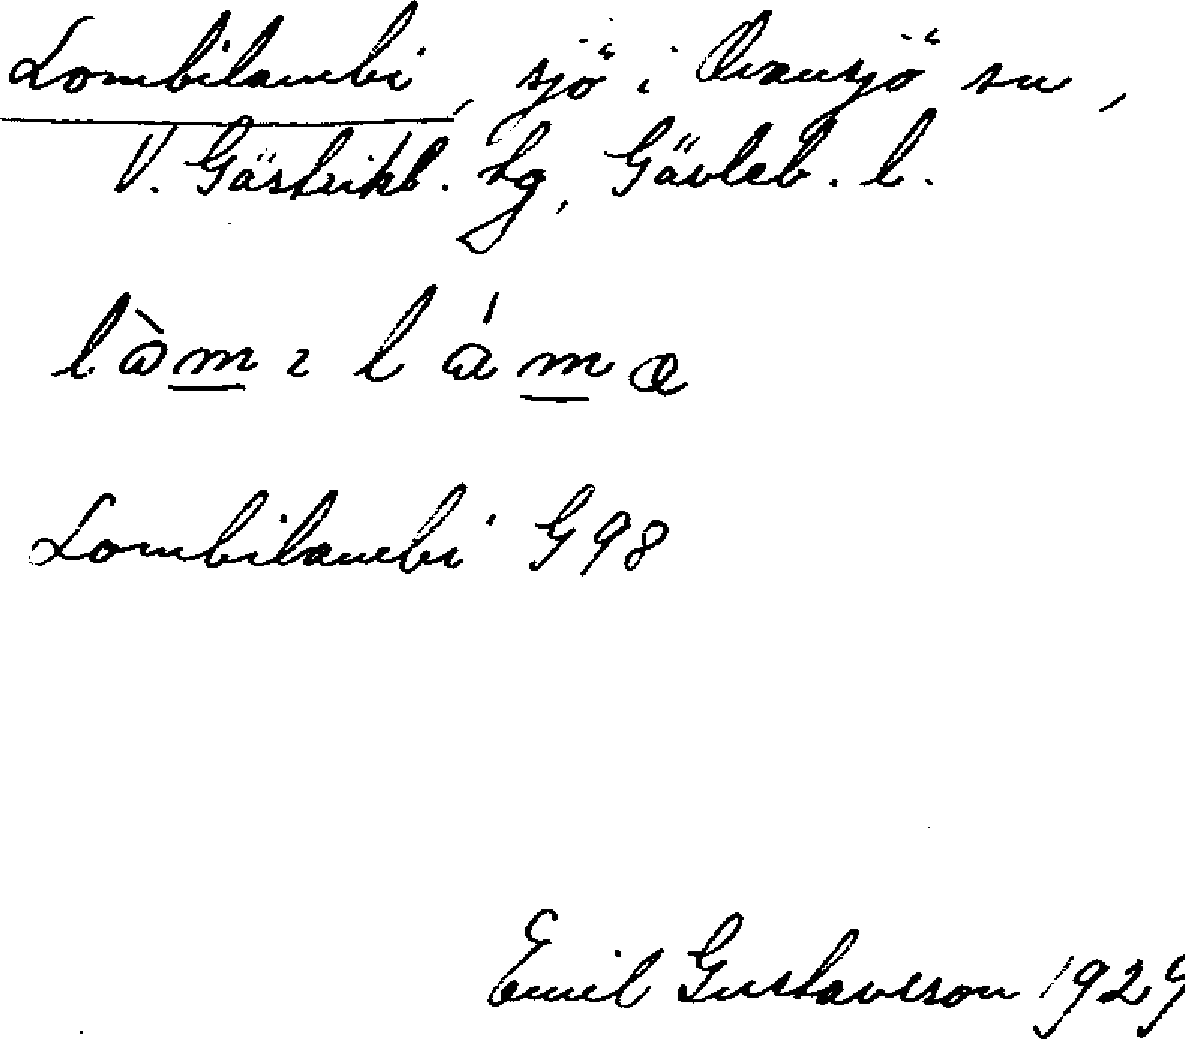 Lombilambi, sjö i Ovansjö sn,
V. Gästrikl. hg, Gävleb. l.
Lombilambi G98
Emil Gustavsson 1929